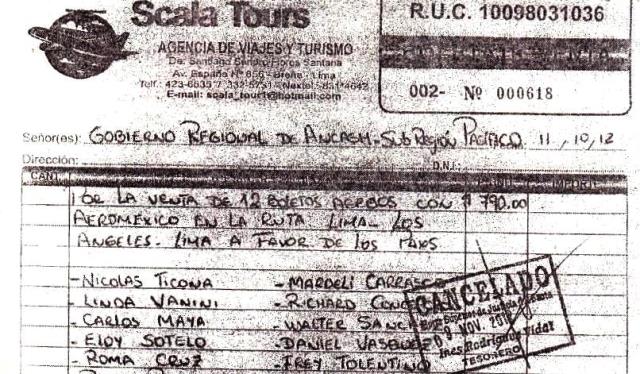 Scala Tours
AGENCIA DE VIAJES Y TURISMO
De: Santiago Sandro Flores Santana
Av. España Nº 855 - Breña - Lima
Telf.: 423-6839
E-mail: scala_tours@hotmail.com
R.U.C. 10098031036
002- Nº 000618
Señor(es): GOBIERNO REGIONAL DE ANCASH-SUB REGIÓN PACIFICO 11,10,12
Dirección: D.N.I.:
CANT. P.UNIT. IMPORTE
POR LA VENTA DE 12 BOLETOS AEREOS CON $ 790.00
AEROMEXICO EN LA RUTA LIMA- LOS
ANGELES- LIMA A FAVOR DE LOS
- NICOLAS TICONA - MARDELI CARRASCO
- LINDA VANINI - RICHARD
- CARLOS MAYA - WALTER
- ELOY SOTELO - DANIEL VASQUEZ
- ROMA CRUZ - FREY TOLENTINO
CANCELADO
09 NOV. 2012
Ines Rodriguez Vidal
TESORERO